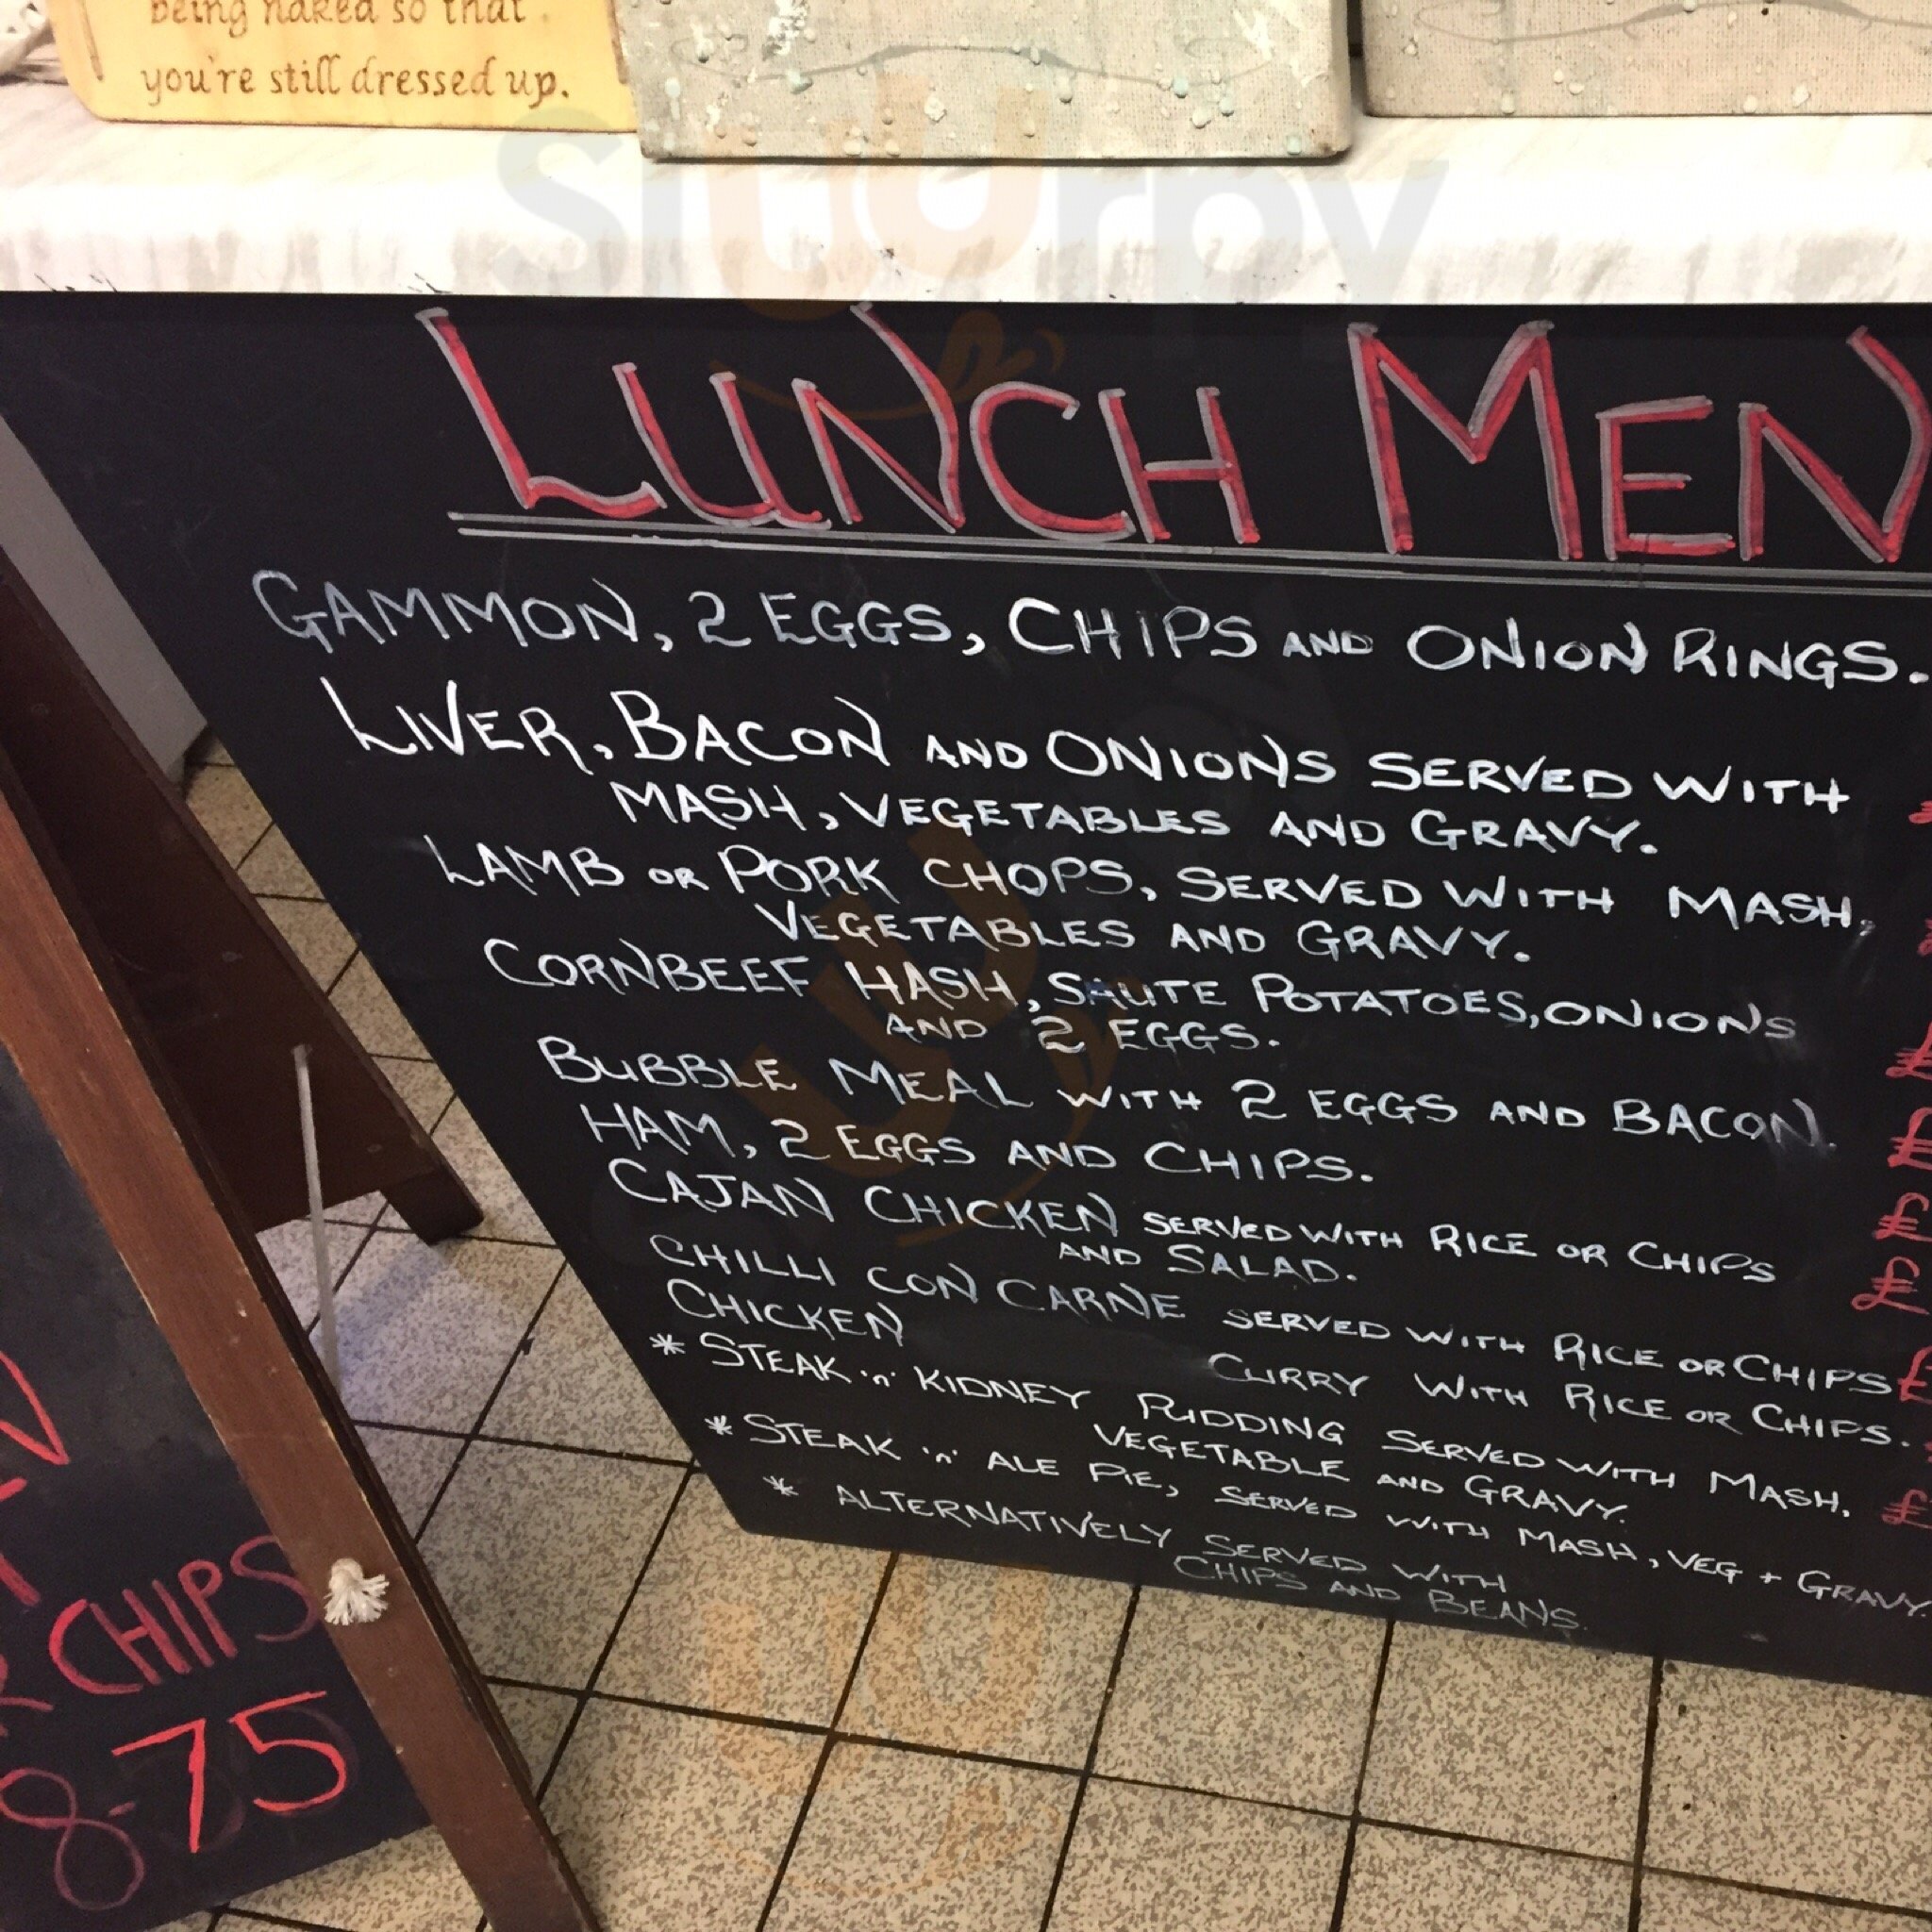 being naked so that
you're still dressed up.
Sluurpy
LUNCH MEN
GAMMON, 2 EGGS, CHIPS AND ONION RINGS.
LIVER, BACON AND ONIONS SERVED WITH
MASH, VEGETABLES AND GRAVY.
LAMB OR PORK CHOPS, SERVED WITH MASH,
VEGETABLES AND GRAVY.
CORNBEEF HASH, SAUTE POTATOES, ONIONS
AND 2 EGGS.
£
BUBBLE MEAL WITH 2 EGGS AND BACON.
£
HAM, 2 EGGS AND CHIPS.
£
CAJAN CHICKEN SERVED WITH RICE OR CHIPS
AND SALAD.
£
CHILLI CON CARNE SERVED WITH RICE OR CHIPS £
CHICKEN CURRY WITH RICE OR CHIPS.
* STEAK 'n' KIDNEY PUDDING SERVED WITH MASH,
VEGETABLE AND GRAVY.
£
* STEAK 'n' ALE PIE, SERVED WITH MASH, VEG + GRAVY.
* ALTERNATIVELY SERVED WITH
CHIPS AND BEANS.
CHIPS
8-75